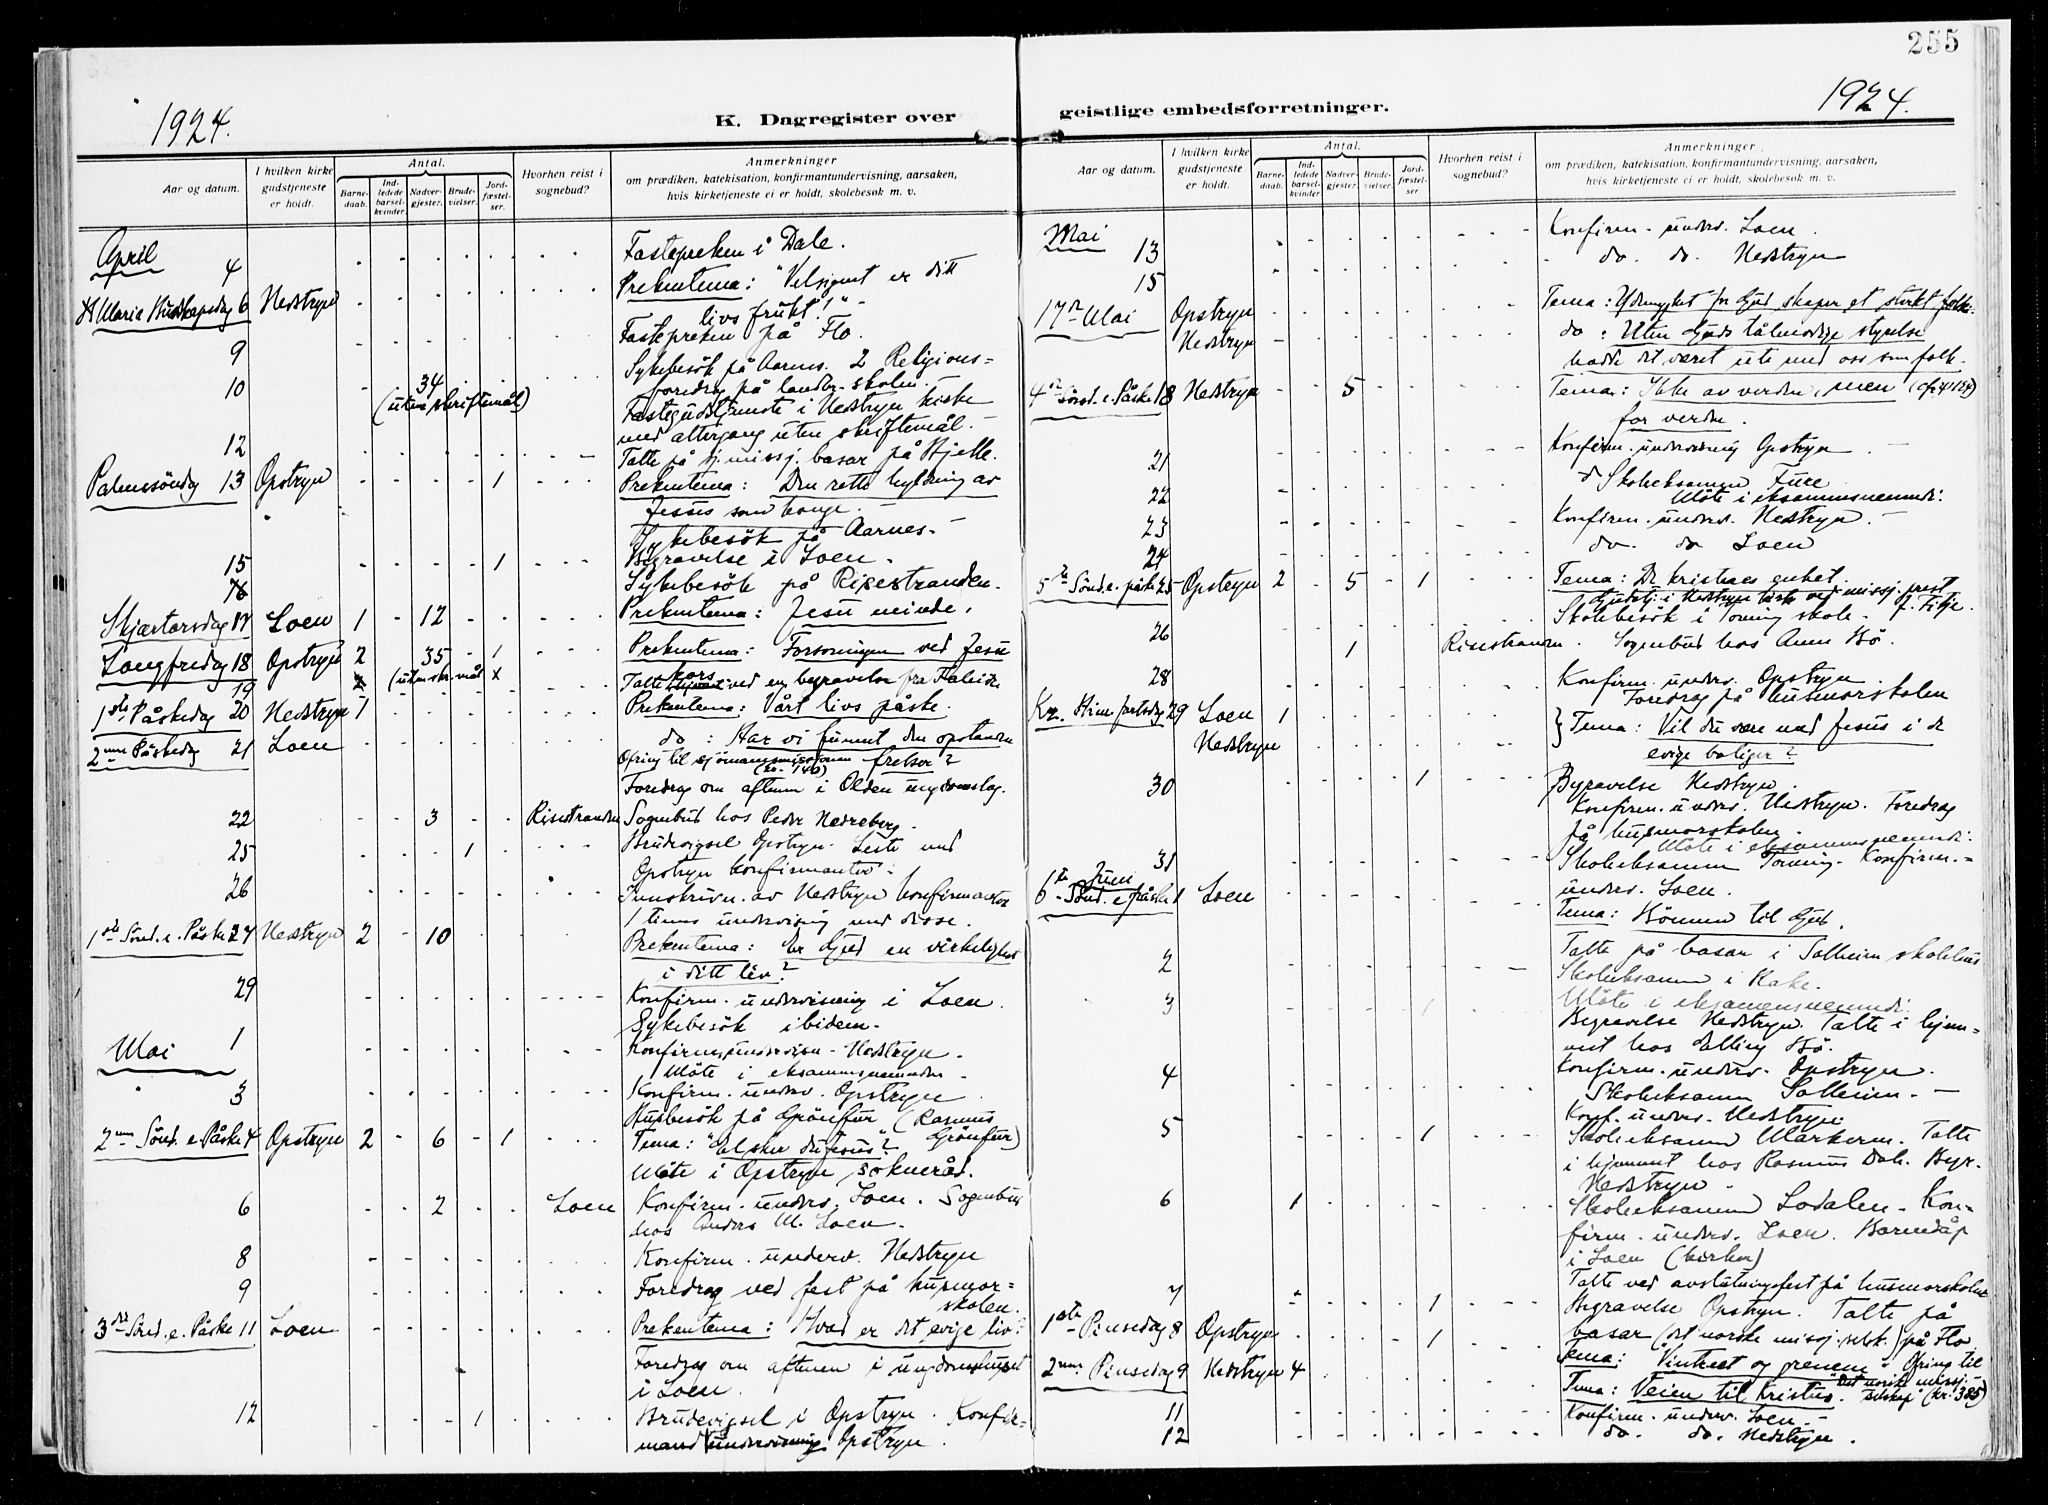 255
1924.
K. Dagregister over
geistlige embedsforretninger.
1924.
Aar og datum.
I hvilken kirke gudstjeneste er holdt.
Antal.
Barnedaab.
Indledede barselkvinder.
Nadvergjester.
Brudevielser.
Jordfæstelser.
Hvorhen reist i sognebud?
Anmerkninger
om prædiken, katekisation, konfirmantundervisning, aarsaken,
hvis kirketjeneste ei er holdt, skolebesøk m. v.
April
4 Fastepreken i Dale.
Maria Budskapsdag 6 Nedstryn Prekentema: "Velsignet er ditt
livs frukt!" -
9 Fastepreken på Flo.
10 Sykebesök på Aarnes. 2 Religions=
foredrag på landbr. skolen.
34
(uten skriftemål) Fastegudstjeneste i Nedstryn kirke
med altergang uten skriftemål. -
12 Talte på sj.missj. basar på Hjelle.
Palmesöndag 13 Opstryn 1 Prekentema: Den rette hyldning av
Jesus som konge. -
Sykebesök på Aarnes. -
15 1 Begravelse i Loen.
16 Sykebesök på Risestranden.
Skjærtorsdag 17 Loen 1 12 Prekentema: Jesu minde.
Langfredag 18 Opstryn 2 35 1 Prekentema: Forsoningen ved Jesu
kors
19 (uten skr.mål x Talte ved en begravelse fra
1ste Påskedag 20 Nedstryn 1 Prekentema: Vårt livs påske.
2nen Påskedag 21 Loen do: Har vi funnet den opstandne
frelser?
Ofring til sjömannsmissjonen
(kr. 140)
Foredrag om aftenen i Olden ungdomslag.
22 3 Risestranden Sognebud hos Peder Nedreberg.
25 1 Brudevigsel Opstryn. Leste med
Opstryn konfirmanter.
26 Innskrivn. av Nedstryn konfirmanter
1 times undervisning med disse.
1ste Sönd. e. Påske 27 Nedstryn 2 10 Prekentema: Er Gud en virkelighet
i ditt liv?
29 Konfirm. undervisning i Loen.
Sykebesök ibidem.
Mai
1 Konfirm. undervisn. Nedstryn.
Möte i eksamensnemnden
3 Konfirm. underv. Opstryn
Husbesök på Grönfur (Rasmus
Grönfur)
2nen Sönd. e. Påske 4 Opstryn 2 6 1 Tema: "Elsker du Jesus"?
Möte i Opstryn sokneråd.
6 2 Loen Konfirm. underv. Loen. Sognebud
hos Anders M. Loen.
8 Konfirm. underv. Nedstryn
9 Foredrag ved fest på husmor=
skolen.
3die Sönd. e. Påske 11 Loen Prekentema: Hvad er det evige liv?
Foredrag om aftenen i ungdomshuset
i Loen.
12 1 Brudevigsel i Opstryn. Konfir=
mandundervisning Opstryn.
Aar og datum.
I hvilken kirke gudstjeneste er holdt.
Antal.
Barnedaab.
Indledede barselkvinder.
Nadvergjester.
Brudevielser.
Jordfæstelser.
Hvorhen reist i sognebud?
Anmerkninger
om prædiken, katekisation, konfirmantundervisning, aarsaken,
hvis kirketjeneste ei er holdt, skolebesøk m. v.
Mai
13 Konfirm. underv. Loen.
15 do. do. Nedstryn
17de Mai Opstryn Tema: Ydmykhet for Gud skaper et sterkt folk.
Nedstryn do: Uten Guds tålmodige styrelse
hadde det været ute med oss som folk.
4de Sönd. e. Påske 18 Nedstryn 5 Tema: Ikke av verden, men
for verden.
21 Konfirm. undervisning Opstryn
22 Skoleeksamen Fure
Möte i eksamensnemndi.
23 Konfirm. underv. Nedstryn.
24 do. do Loen
5te Sönd. e. påske 25 Opstryn 2 5 1 Tema: De kristnes enhet.
Gudstj. i Nedstryn kirke ved missj. prest
Fitje.
26 Skolebesök i Toning skole.
1 Risestranden. Sognebud hos Anne Bö.
28 Konfirm. underv. Opstryn.
Foredrag på husmorskolen
Kr. Himmelfartsdag 29 Loen 1 Tema: Vil du være med Jesus i de
Nedstryn evige boliger?
30 1 Begravelse Nedstryn.
Konfirm. underv. Nedstryn. Foredrag
på husmorskolen.
Möte i eksamensnemndi.
31 Skoleeksamen Toning. Konfirm.=
underv. Loen.
Juni
6te Sönd. e påske 1 Loen Tema: Bönnen til Gud.
2 Talte på basar i Solheim skolehus
Skoleeksamen i Rake.
Möte i eksamensnemndi.
3 1 Begravelse Nedstryn. Talte i hjem=
met hos Elling Bö.
4 Konfirm. underv. Opstryn.
Skoleeksamen Solheim. -
5 1 Konf. underv. Nedstryn
Skoleeksamen Markene. Talte
i hjemmet hos Rasmus Dal. Begr.
Nedstryn -
6 1 Skoleeksamen Lodalen. Kon=
firm. underv. Loen. Barnedåp
i Loen (kirken)
7 1 Talte ved avslutningsfest på husmorskolen
Begravelse Opstryn. Talte på
basar (det norske missj. selsk.) på Flo.
1ste Pinsedag 8 Opstryn 1 Tema: Vintreet og grenene. Ofring til
Det norske missj.=
selskap (kr. 385)
2nen Pinsedag 9 Nedstryn 4 Tema: Veien til Kristus.
11 Konfirm. underv. Loen.-
12 do. do. Nedstryn.